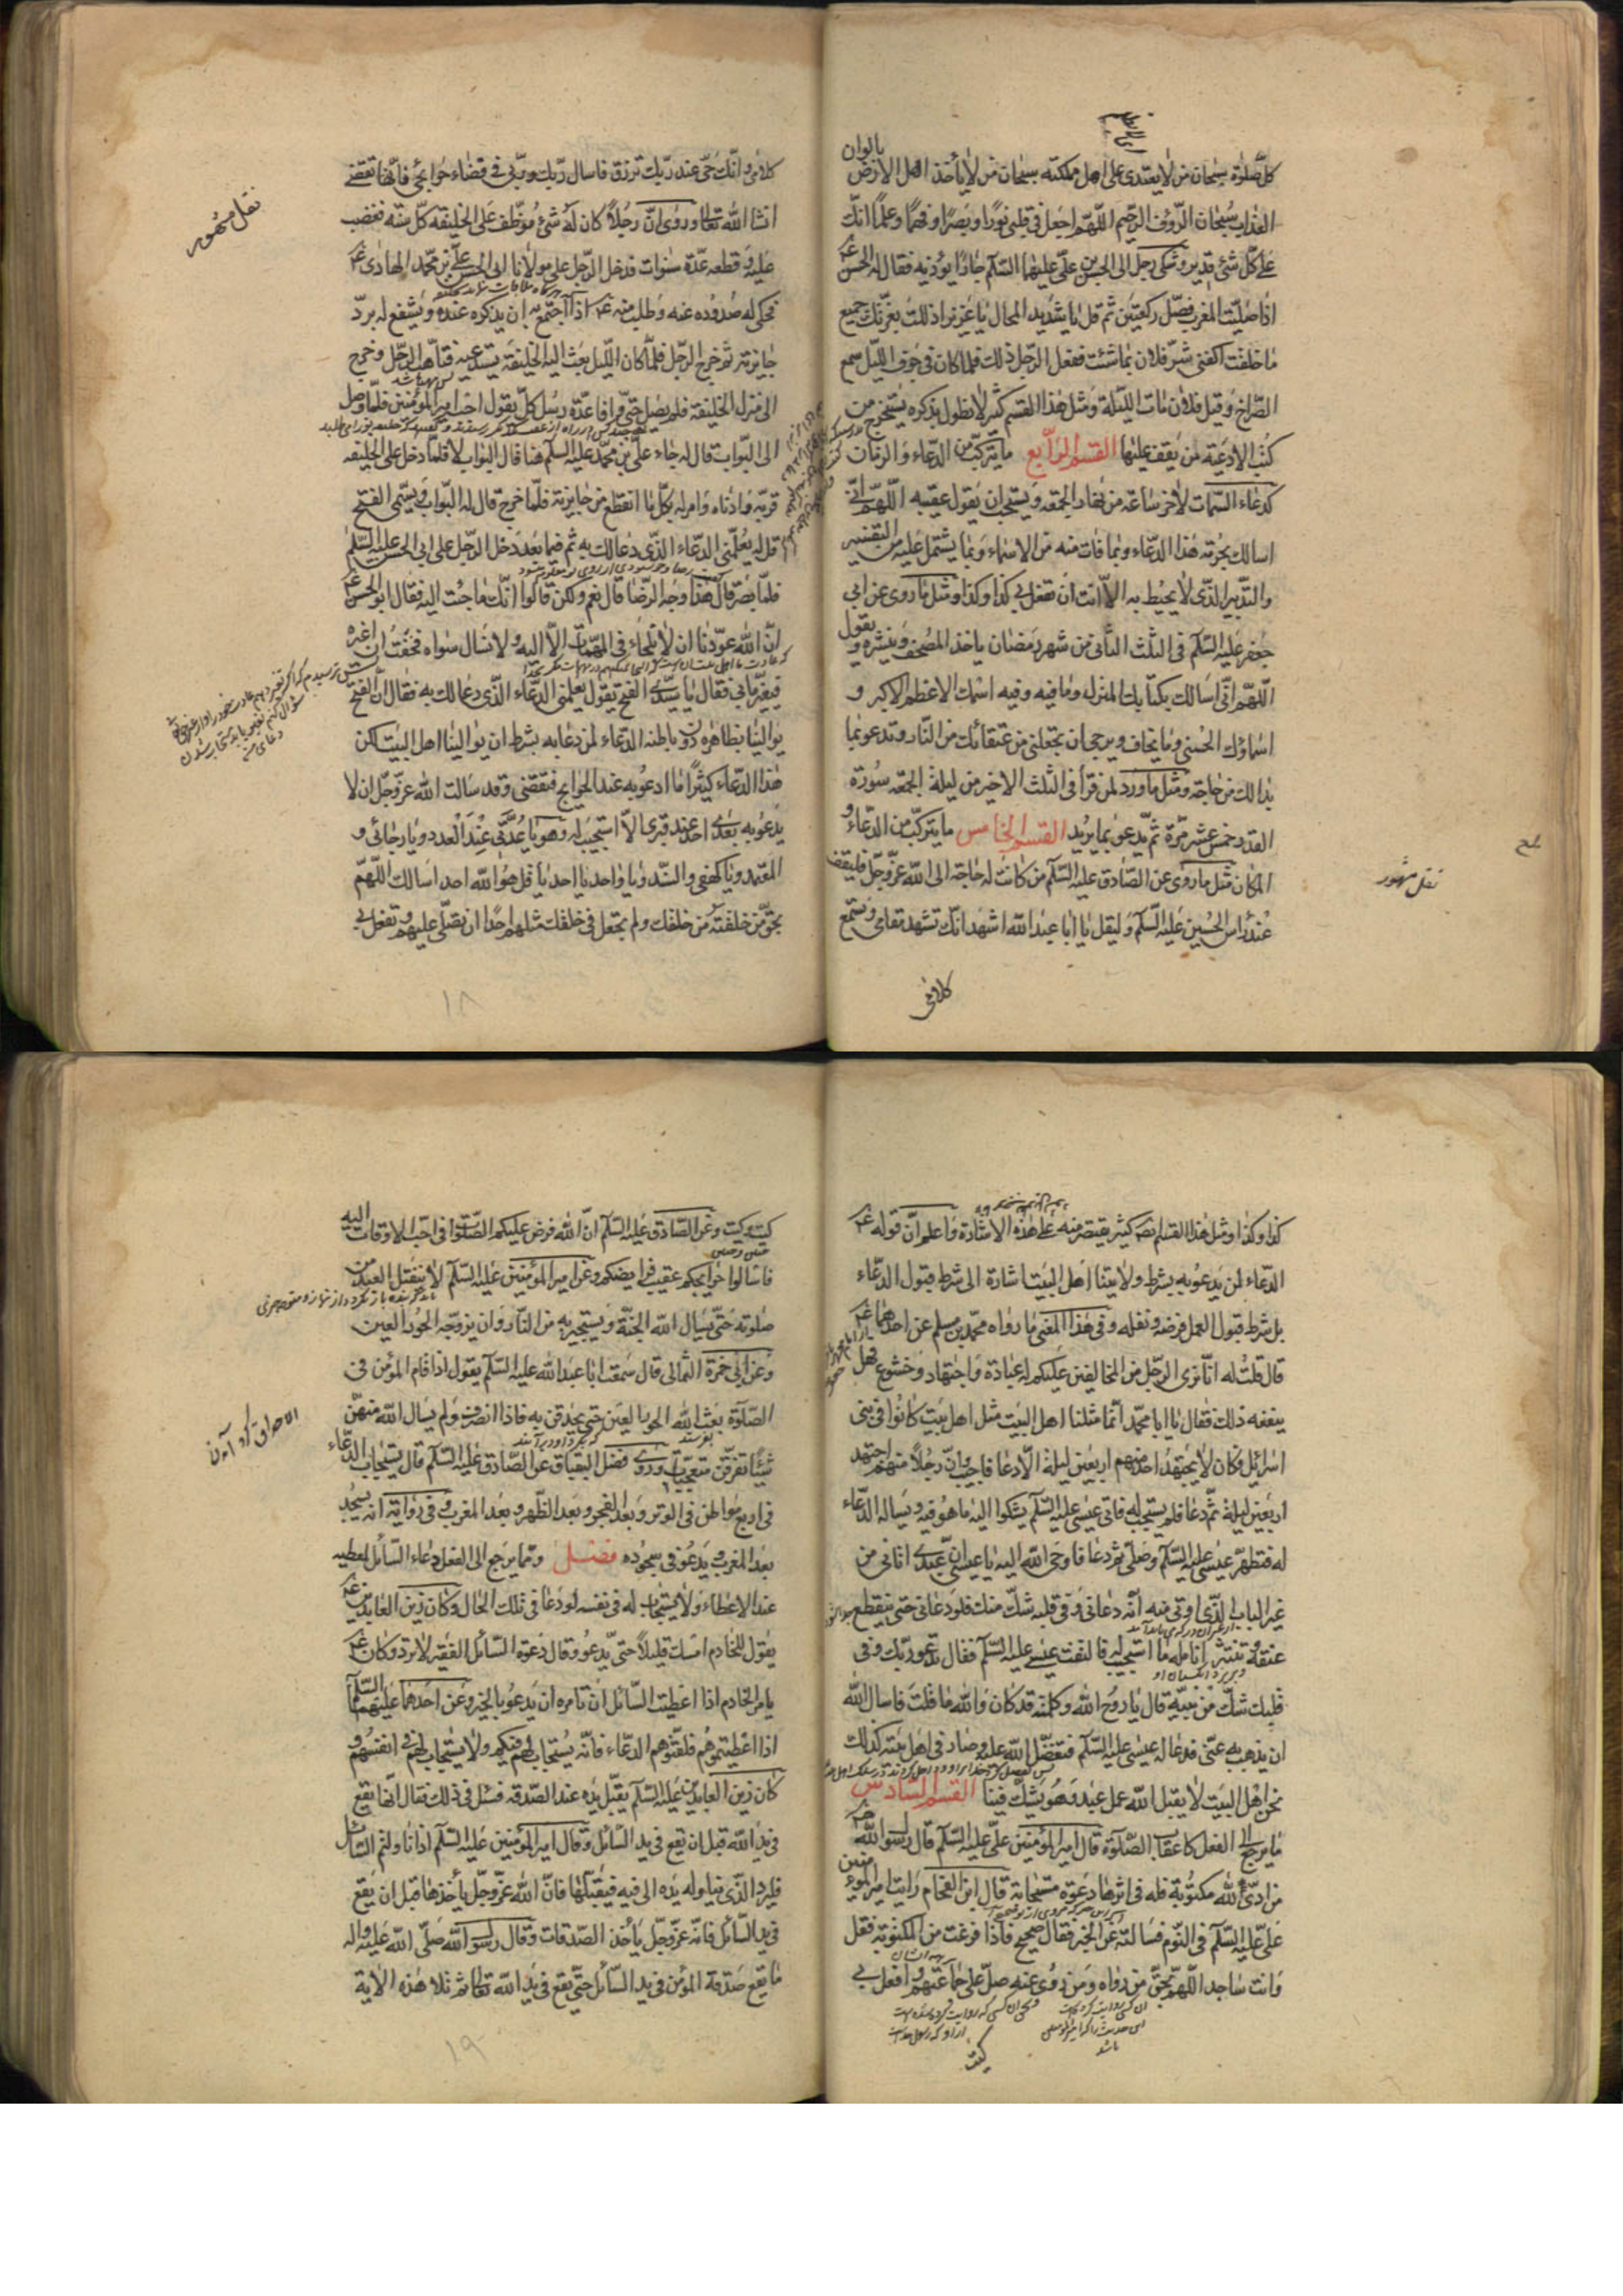 كل صلوة سبحان من لا يعتدى على اهل مملكته سبحان من لا يأخذ اهل الارض بالوان
العذاب سبحان الرؤف الرحيم اللهم اجعل فى قلبى نورا و بصرا و فهما و علما انك
على كل شئ قدير و شكى رجل الى الحسن بن على عليهما السلم جارا يؤذيه فقال له الحسن ع
اذا صليت المغرب فصل ركعتين ثم قل يا شديد المحال يا عزيز اذللت بعزتك جميع
ما خلقت اكفنى شر فلان بما شئت ففعل الرجل ذلك فلما كان فى جوف الليل سمع
الصراخ و قيل فلان مات الليلة و مثل هذا القسم كثير لا نطول بذكره يستخرج من
كتب الادعية لمن يقف عليها القسم الرابع ما يتركب من الدعاء و الزمان
كدعاء السمات لاخر ساعة من نهار الجمعه و يستحب ان يقول عقيبه اللهم انى
اسالك بحرمة هذا الدعاء و بما فات منه من الاسماء و بما يشتمل عليه من التفسير
و التدبير الذى لا يحيط به الا انت ان تفعل بى كذا و كذا و مثل ما روى عن ابى
جعفر عليه السلم فى الثلث الثانى من شهر رمضان ياخذ المصحف و ينشره و يقول
اللهم انى اسالك بكتابك المنزل و ما فيه و فيه اسمك الاعظم الاكبر و
اسماؤك الحسنى و ما يخاف و يرجى ان تجعلنى من عتقائك من النار و تدعو بما
بدا لك من حاجة و مثل ما ورد لمن قرأ فى الثلث الاخير من ليلة الجمعه سورة
القدر خمس عشر مرة ثم يدعو بما يريد القسم الخامس ما يتركب من الدعاء و
المكان مثل ما روى عن الصادق عليه السلم من كانت له حاجة الى الله عز و جل فليقف
عند راس الحسين عليه السلم و ليقل يا ابا عبد الله اشهد انك تشهد مقامى و تسمع
كلامى
نقل مشهور
كلامى و انك حى عند ربك ترزق فاسال ربك و ربى فى قضاء حوائجى فانها تقضى
انشا الله تعالى و روى ان رجلا كان له شئ موظف على الخليفه كل سنة فغضب
عليه و قطعه عدة سنوات فدخل الرجل على مولانا ابى الحسن على بن محمد الهادى ع
فحكى له صدوده عنه و طلب منه ع اذا اجتمع به ان يذكره عنده و يشفع له برد
جايزته ثم خرج الرجل فلما كان الليل بعث اليه الخليفة يستدعيه فتاهب الرجل و خرج
الى منزل الخليفة فلم يصل حتى وافاه عدة رسل كل يقول اجب امير المؤمنين فلما وصل
الى البواب قال له جاء على بن محمد عليه السلم هنا قال البواب لا فلما دخل على الخليفه
قربه و ادناه و امر له بكل ما انقطع من جايزته فلما خرج قال له البواب و يسمى الفتح
قل له يعلمنى الدعاء الذى دعا لك به ثم فيما بعد دخل الرجل على ابى الحسن عليه السلم
فلما بصر قال هذا وجه الرضا قال نعم و لكن قالوا انك ما جئت اليه فقال ابو الحسن ع
ان الله عودنا ان لا نلجاء فى المهمات الا اليه و لا نسال سواه فخفت ان اغير
فيغير ما بى فقال يا سيدى الفتح يقول يعلمنى الدعاء الذى دعا لك به فقال ان الفتح
يوالينا بظاهره دون باطنه الدعاء لمن دعا به بشرط ان يوالينا اهل البيت لكن
هذا الدعاء كثيرا ما ادعو به عند الحوايج فتقضى و قد سالت الله عز و جل ان لا
يدعو به بعدى احد عند قبرى الا استجيب له و هو يا عدتى عند العدد و يا رجائى و
المعتمد و يا كهفى و السند و يا واحد يا احد يا قل هو الله احد اسالك اللهم
بحق من خلقته من خلقك و لم تجعل فى خلقك مثلهم احدا ان تصلى عليهم و تفعل بى
نقل مشهور
١٨
كذا و كذا و مثل هذا القسم كثير يقتصر منه على هذه الاشارة و اعلم ان قوله ع
الدعاء لمن يدعو به بشرط ولايتنا اهل البيت اشارة الى شرط قبول الدعاء
بل شرط قبول العمل فرضه و نفله و فى هذا المعنى ما رواه محمد بن مسلم عن احدهما ع
قال قلت له انا نرى الرجل من المخالفين عليكم له عبادة و اجتهاد و خشوع فهل
ينفعه ذلك فقال يا ابا محمد انما مثلنا اهل البيت مثل اهل بيت كانوا فى بنى
اسرائيل فكان لا يجتهد احد منهم اربعين ليلة الا دعا فاجيب و ان رجلا منهم اجتهد
اربعين ليلة ثم دعا فلم يستجب له فاتى عيسى عليه السلم يشكوا اليه ما هو فيه و يساله الدعاء
له فتطهر عيسى عليه السلم و صلى ثم دعا فاوحى الله اليه يا عيسى ان عبدى اتانى من
غير الباب الذى اوتى منه انه دعانى و فى قلبه شك منك فلو دعانى حتى ينقطع
عنقه و تنتثر انامله ما استجيب له فالتفت عيسى عليه السلم فقال تدعو ربك و فى
قلبك شك من نبيه قال يا روح الله و كلمته قد كان و الله ما قلت فاسال الله
ان يذهب به عنى فدعا له عيسى عليه السلم فتفضل الله عليه و صار فى اهل بيته كذلك
نحن اهل البيت لا يقبل الله عمل عبد و هو يشك فينا القسم السادس
ما يرجع الى الفعل كاعقاب الصلوة قال امير المؤمنين على عليه السلم قال رسول الله ص
من ادى لله مكتوبة فله فى اثرها دعوة مستجابة قال ابن الفحام رايت امير المؤمنين
على عليه السلم فى النوم فسالته عن الخبر فقال صحيح فاذا فرغت من المكتوبة فقل
و انت ساجد اللهم بحق من رواه و من روى عنه صل على جماعتهم و افعل بى
كيت
كيت و كيت و عن الصادق عليه السلم ان الله فرض عليكم الصلوات فى احب الاوقات اليه
فاسالوا حوايجكم عقيب فرايضكم و عن امير المؤمنين عليه السلم لا ينفتل العبد من
صلوته حتى يسال الله الجنة و يستجير به من النار و ان يزوجه الحور العين
و عن ابى حمزة الثمالى قال سمعت ابا عبد الله عليه السلم يقول اذا قام المؤمن فى
الصلوة بعث الله الحور العين حتى يحدقن به فاذا انصرف و لم يسال الله منهن
شيئا تفرقن متعجبات و روى فضل البقباق عن الصادق عليه السلم قال يستجاب الدعاء
فى اربع مواطن فى الوتر و بعد الفجر و بعد الظهر و بعد المغرب و فى رواية انه يسجد
بعد المغرب و يدعو فى سجوده فصل و مما يرجع الى الفعل دعاء السائل لمعطيه
عند الاعطاء و لا يستجاب له فى نفسه لو دعا فى تلك الحال و كان زين العابدين ع
يقول للخادم امسك قليلا حتى يدعو و قال دعوة السائل الفقير لا ترد و كان ع
يامر الخادم اذا اعطيت السائل ان تامره ان يدعو بالخير و عن احدهما عليهما السلم
اذا اعطيتموهم فلقنوهم الدعاء فانه يستجاب لهم فيكم و لا يستجاب لهم فى انفسهم و
كان زين العابدين عليه السلم يقبل يده عند الصدقه فسئل فى ذلك فقال انها تقع
فى يد الله قبل ان تقع فى يد السائل و قال امير المؤمنين عليه السلم اذا ناولتم السائل
فليرد الذى يناوله يده الى فيه فيقبلها فان الله عز و جل يأخذها قبل ان يقع
فى يد السائل فانه عز و جل يأخذ الصدقات و قال رسول الله صلى الله عليه و اله
ما يقع صدقة المؤمن فى يد السائل حتى يقع فى يد الله تعالى ثم تلا هذه الاية
١٩